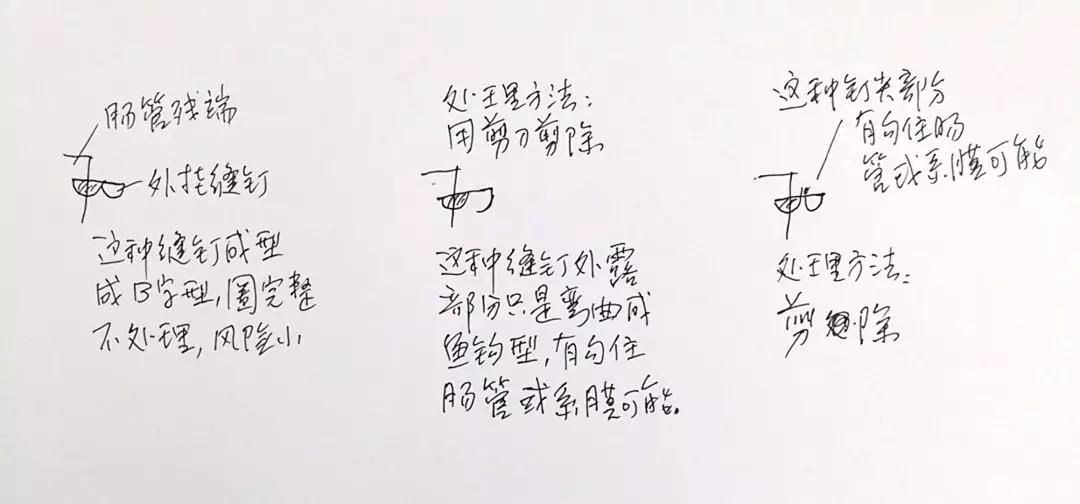 肠管残端
外挂缝钉
这种缝钉成型
成B字型,圈完整
不处理,风险小
处理方法:
用剪刀剪除
这种缝钉外露
部份只是弯曲成
鱼钩型,有勾住
肠管或系膜可能.
这种钉尖部分
有勾住肠
管或系膜可能
处理方法:
剪除